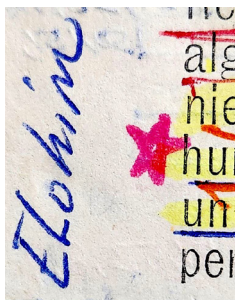 Elohim
alg
nie
hun
un
per